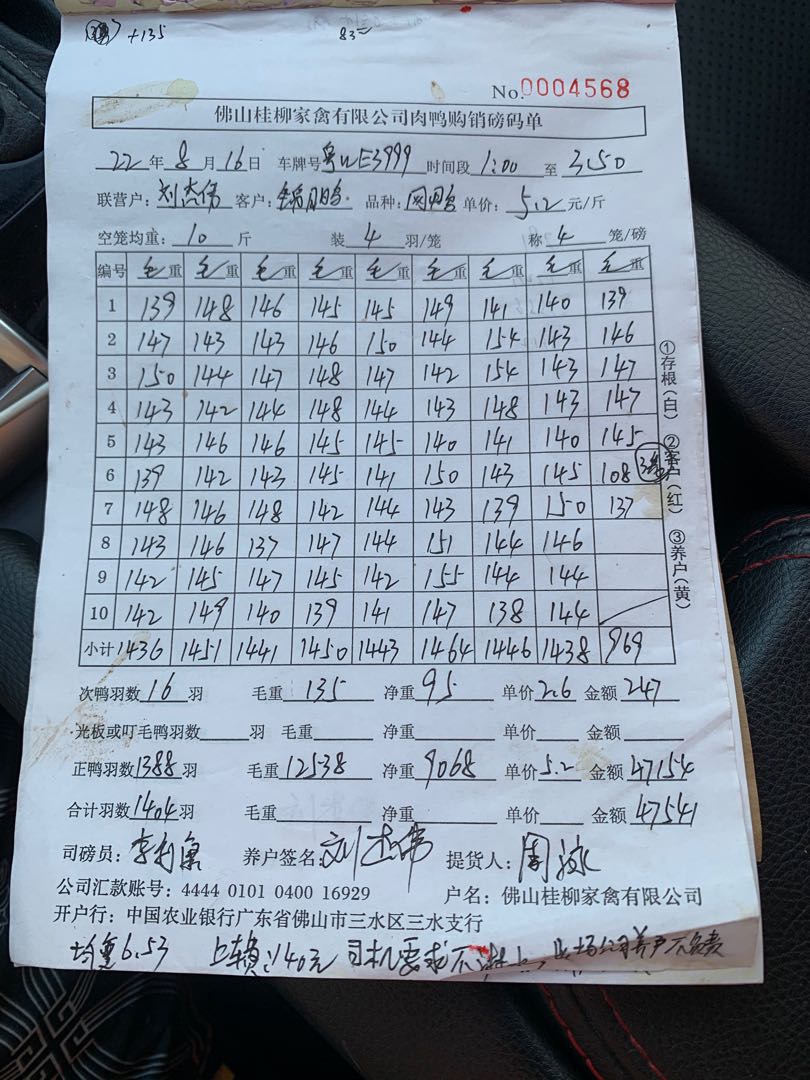 +135 83
No.0004568
佛山桂柳家禽有限公司肉鸭购销磅码单
22年8月16日 车牌号粤WE3999时间段1:00至3.50
联营户:刘杰伟 客户: 品种: 单价:5.2元/斤
空笼均重:10斤 装4羽/笼 称4笼/磅
编号 毛重 毛重 毛重 毛重 毛重 毛重 毛重 毛重 毛重
1 139 148 146 145 145 149 141 140 139
2 147 143 143 146 150 144 154 143 146
3 150 144 147 148 147 142 154 143 147
4 143 142 144 148 144 143 148 143 147
5 143 146 146 145 145 140 141 140 145
6 139 142 143 145 141 150 143 145 108
7 148 146 148 142 144 143 139 150 137
8 143 146 137 147 144 151 144 146
9 142 145 147 145 142 155 144 144
10 142 149 140 139 141 147 138 144
小计 1436 1451 1441 1450 1443 1464 1446 1438 969
①存根(白) ②客户(红) ③养户(黄)
次鸭羽数16羽 毛重135 净重95 单价2.6 金额247
光板或叮毛鸭羽数 羽 毛重 净重 单价 金额
正鸭羽数1388羽 毛重12538 净重9068 单价5.2 金额47154
合计羽数1404羽 毛重 净重 单价 金额47541
司磅员: 养户签名:刘杰伟 提货人:周泳
公司汇款账号:4444 0101 0400 16929 户名:佛山桂柳家禽有限公司
开户行:中国农业银行广东省佛山市三水区三水支行
均重6.53 上车费:140元 司机要求不 公司养户不负责